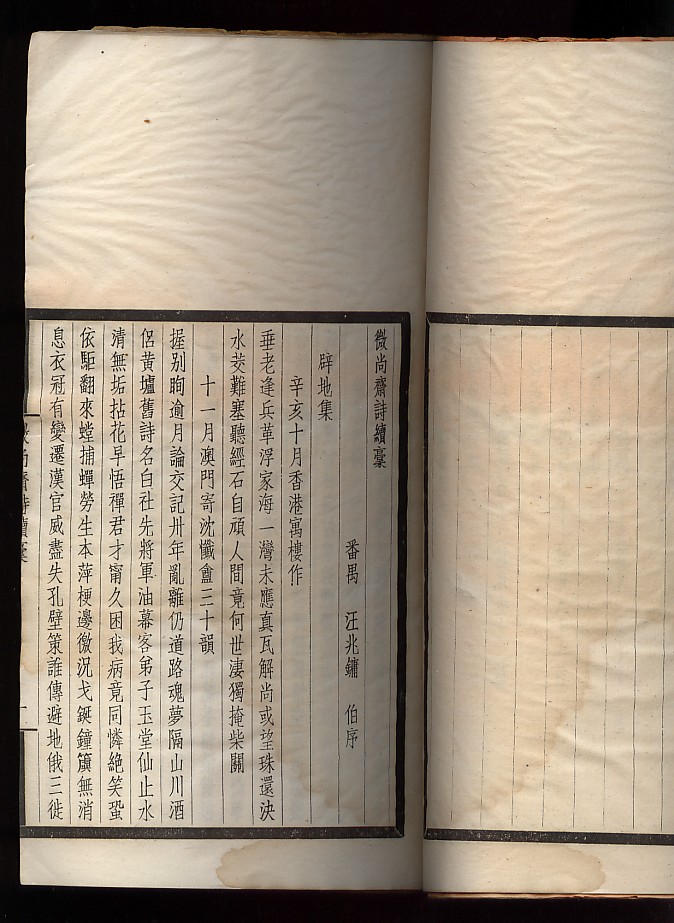 微尚齋詩續稾
番禺 汪兆鏞 伯序
辟地集
辛亥十月香港寓樓作
垂老逢兵革浮家海一灣未應真瓦解尚或望珠還決
水茭難塞聽經石自頑人間竟何世淒獨掩柴關
十一月澳門寄沈懺盦三十韻
握別朐逾月論交記卅年亂離仍道路魂夢隔山川酒
侶黃壚舊詩名白社先將軍油幕客弟子玉堂仙止水
清無垢拈花早悟禪君才甯久困我病竟同憐絶笑蛩
依駏翻來螳捕蟬勞生本萍梗邊徼況戈鋋鐘簴無消
息衣冠有變遷漢官威盡失孔壁策誰傳避地俄三徙
微尚齋詩續稾
一